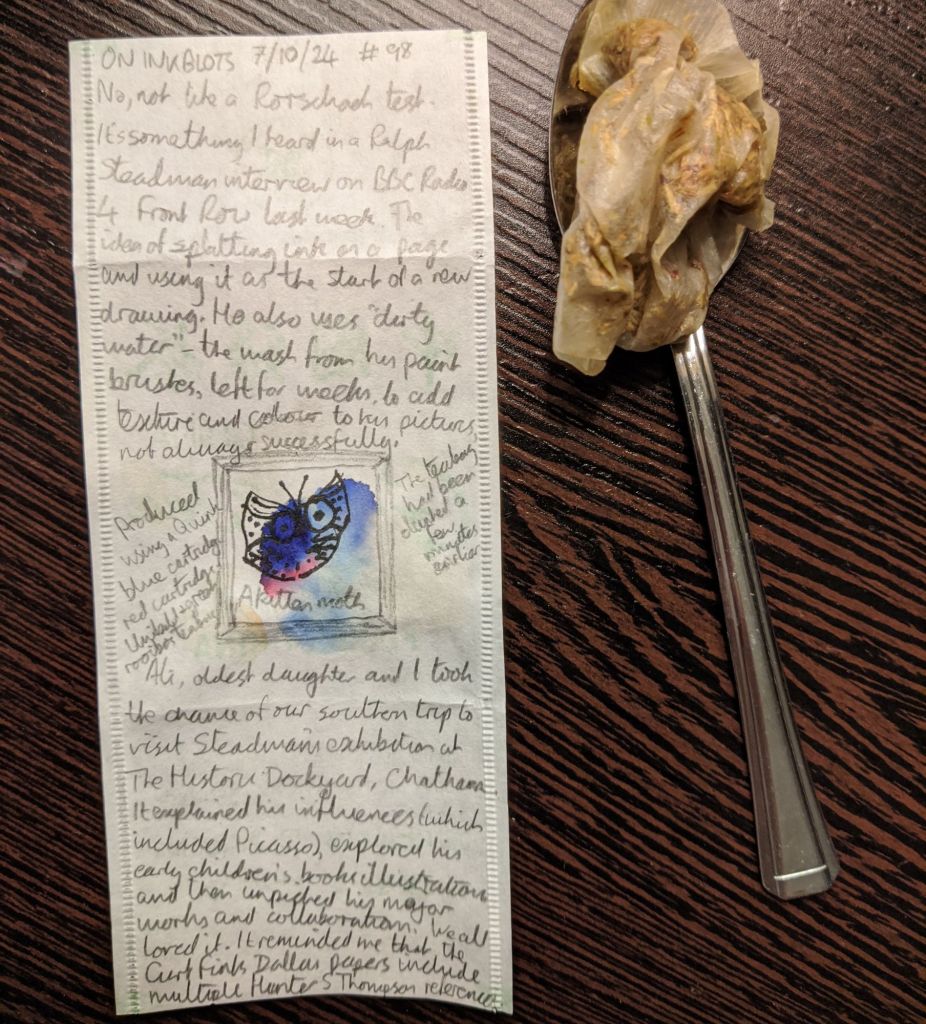 ON INKBLOTS 7/10/24 #98
No, not like a Rorschach test.
It's something I heard in a Ralph
Steadman interview on BBC Radio
4 Front Row last week. The
idea of splatting ink on a page
and using it as the start of a new
drawing. He also uses "dirty
water" - the wash from his paint
brushes, left for weeks, to add
texture and colour to his pictures,
not always successfully.
Produced
using a Quink
blue cartridge
red cartridge
rooibos teabag
A kitten moth
The teabag
had been
a
few
minutes
earlier
Ali, oldest daughter and I took
the chance of our southern trip to
visit Steadman's exhibition at
The Historic Dockyard, Chatham.
It explained his influences (which
included Picasso), explored his
early children's books illustrations
and then unpicked his major
works and collaborations. We all
loved it. It reminded me that the
Curt Finks Dallas papers include
multiple Hunter S Thompson references